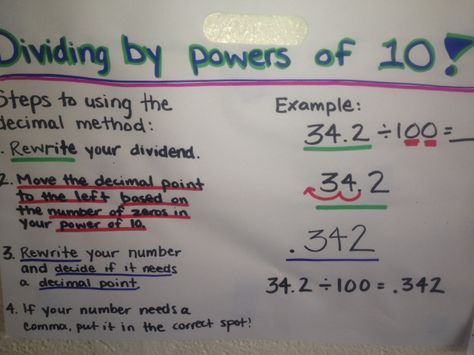 Dividing by powers of 10!
Steps to using the
decimal method:
. Rewrite your dividend.
2. Move the decimal point
to the left based on
the number of zeros in
your power of 10.
3. Rewrite your number
and decide if it needs
a decimal point.
4. If your number needs a
comma, put it in the correct spot!
Example:
34.2 ÷ 100 = _
34.2
.342
34.2 ÷ 100 = .342